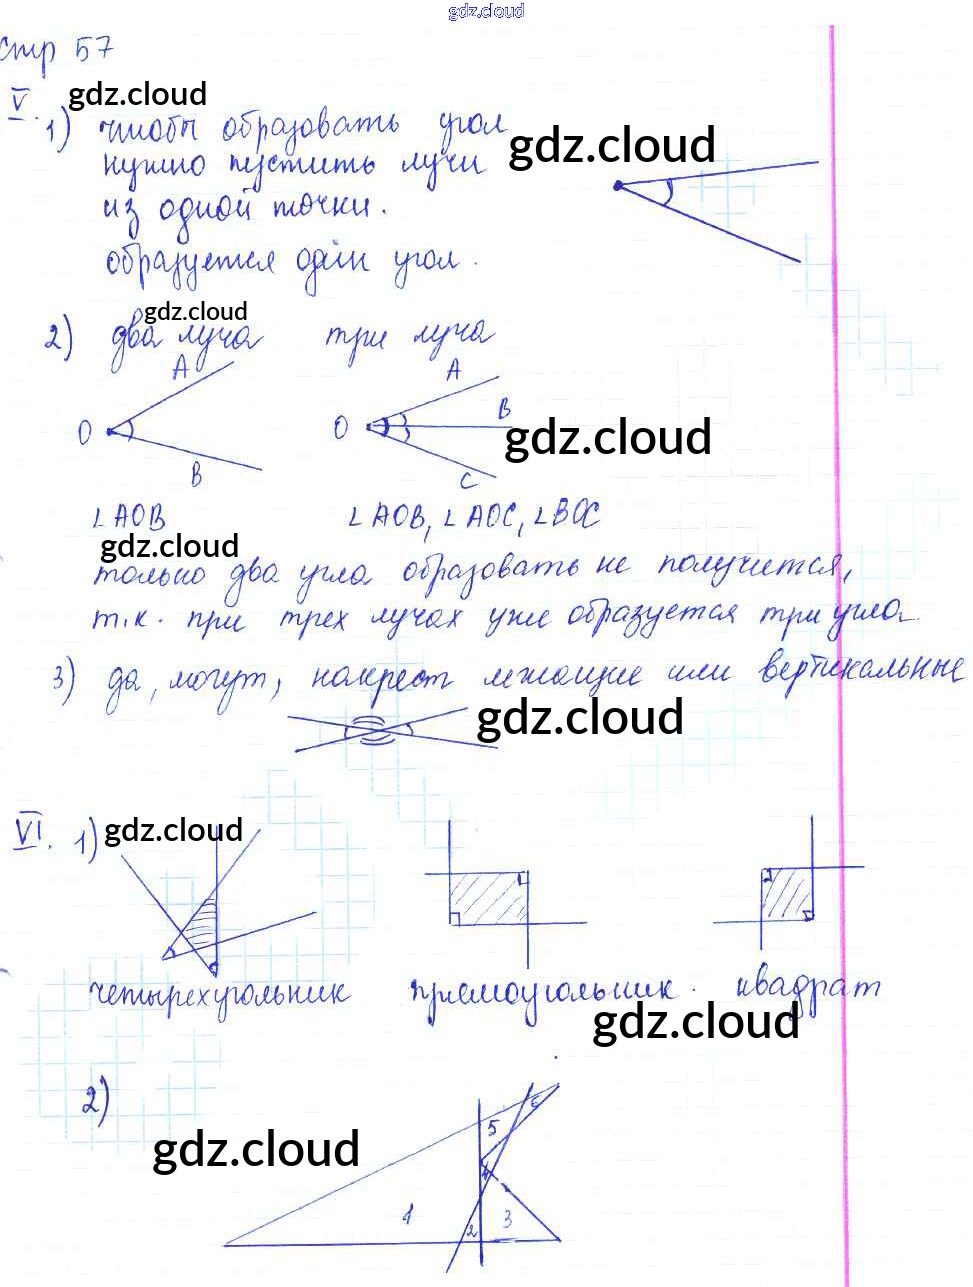 gdz.cloud
стр 57
V.
gdz.cloud
1) чтобы образовать угол
gdz.cloud
нужно пустить лучи
из одной точки.
образуется один угол.
gdz.cloud
2) два луча три луча
A A
O O B
gdz.cloud
B C
∠AOB ∠AOB, ∠AOC, ∠BOC
gdz.cloud
только два угла образовать не получится,
т.к. при трех лучах уже образуется три угла.
3) да, могут, накрест лежащие или вертикальные
gdz.cloud
VI. 1)
gdz.cloud
четырехугольник прямоугольник. квадрат
gdz.cloud
2)
gdz.cloud
5
4
1 2 3